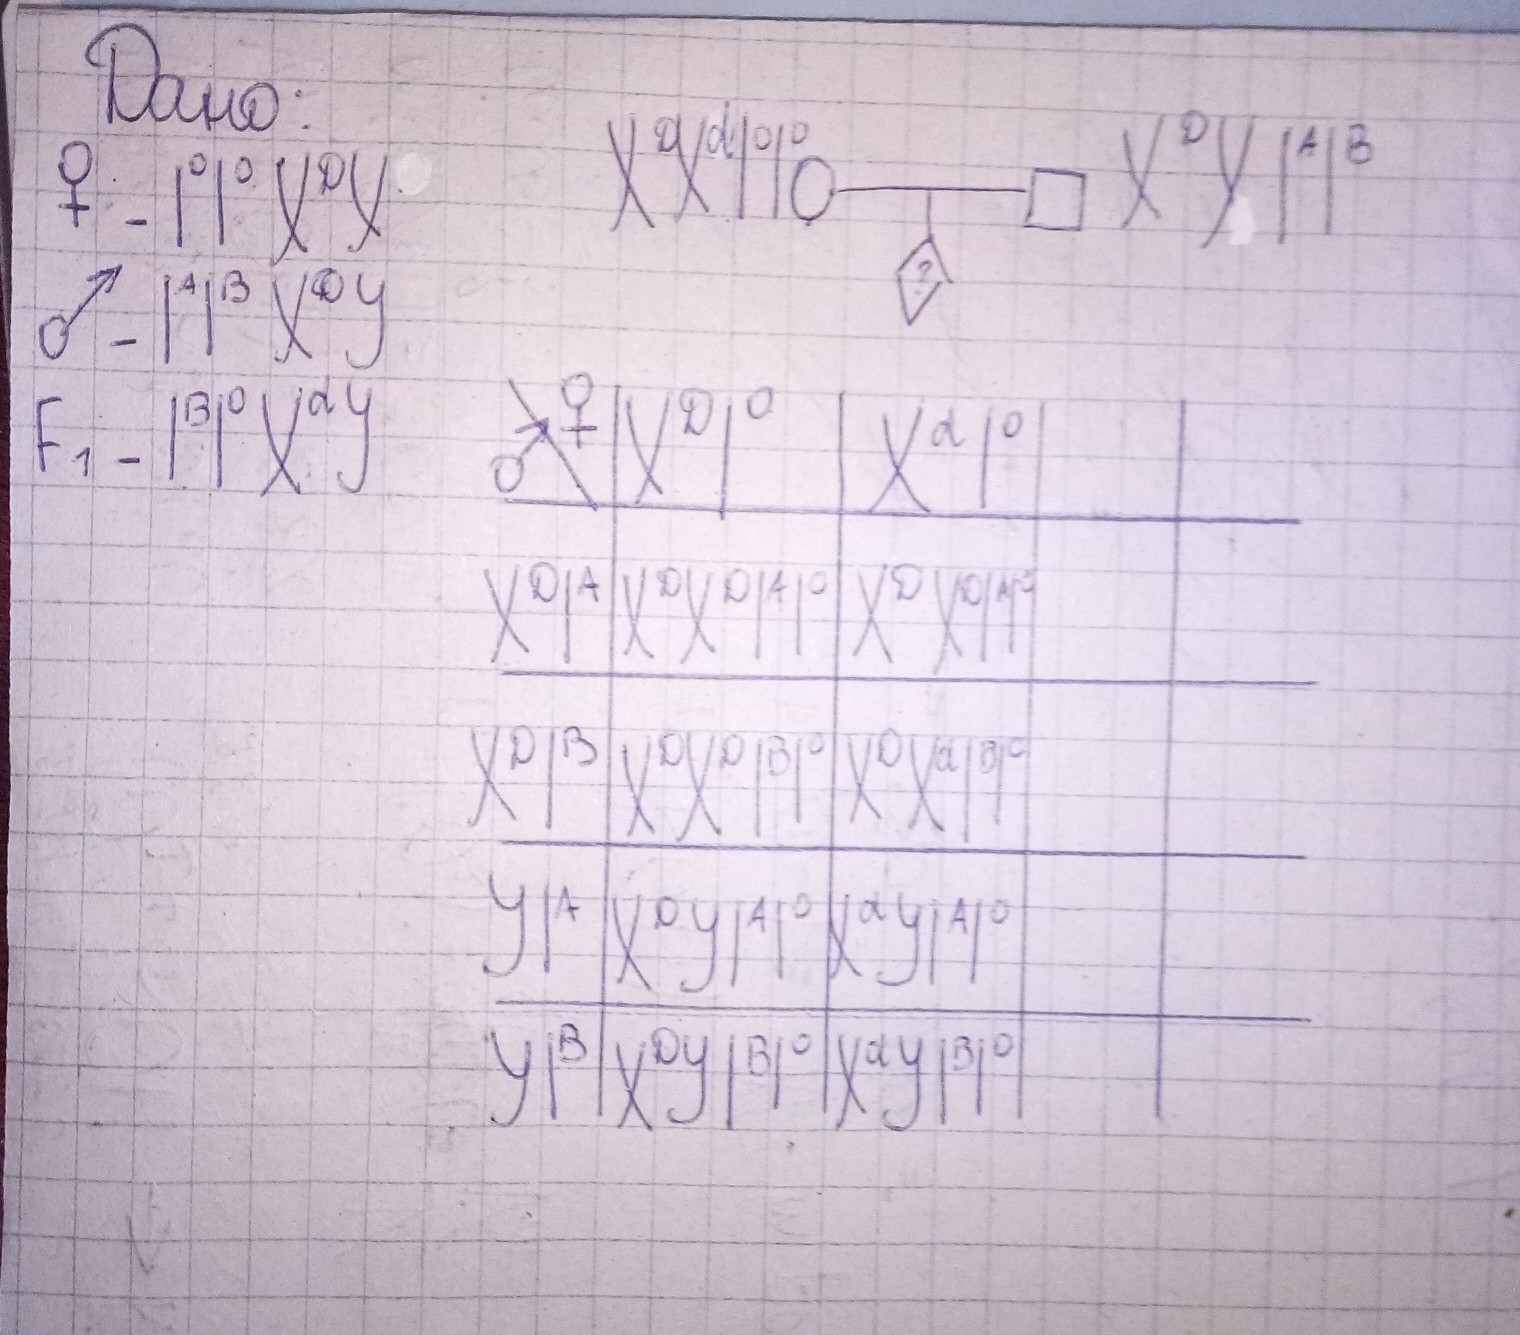 Дано:
♀ - I⁰I⁰ XᴰX
♂ - IᴬIᴮ XᴰY
F₁ - IᴮI⁰ XᵈY
XᴰXᵈI⁰I⁰ XᴰY IᴬIᴮ
?
♂ ♀ XᴰI⁰ XᵈI⁰
XᴰIᴬ XᴰXᴰIᴬI⁰ XᴰXᴰIᴬI⁰
XᴰIᴮ XᴰXᴰIᴮI⁰ XᴰXᵈIᴮI⁰
YIᴬ XᴰYIᴬI⁰ XᵈYIᴬI⁰
YIᴮ XᴰYIᴮI⁰ XᵈYIᴮI⁰